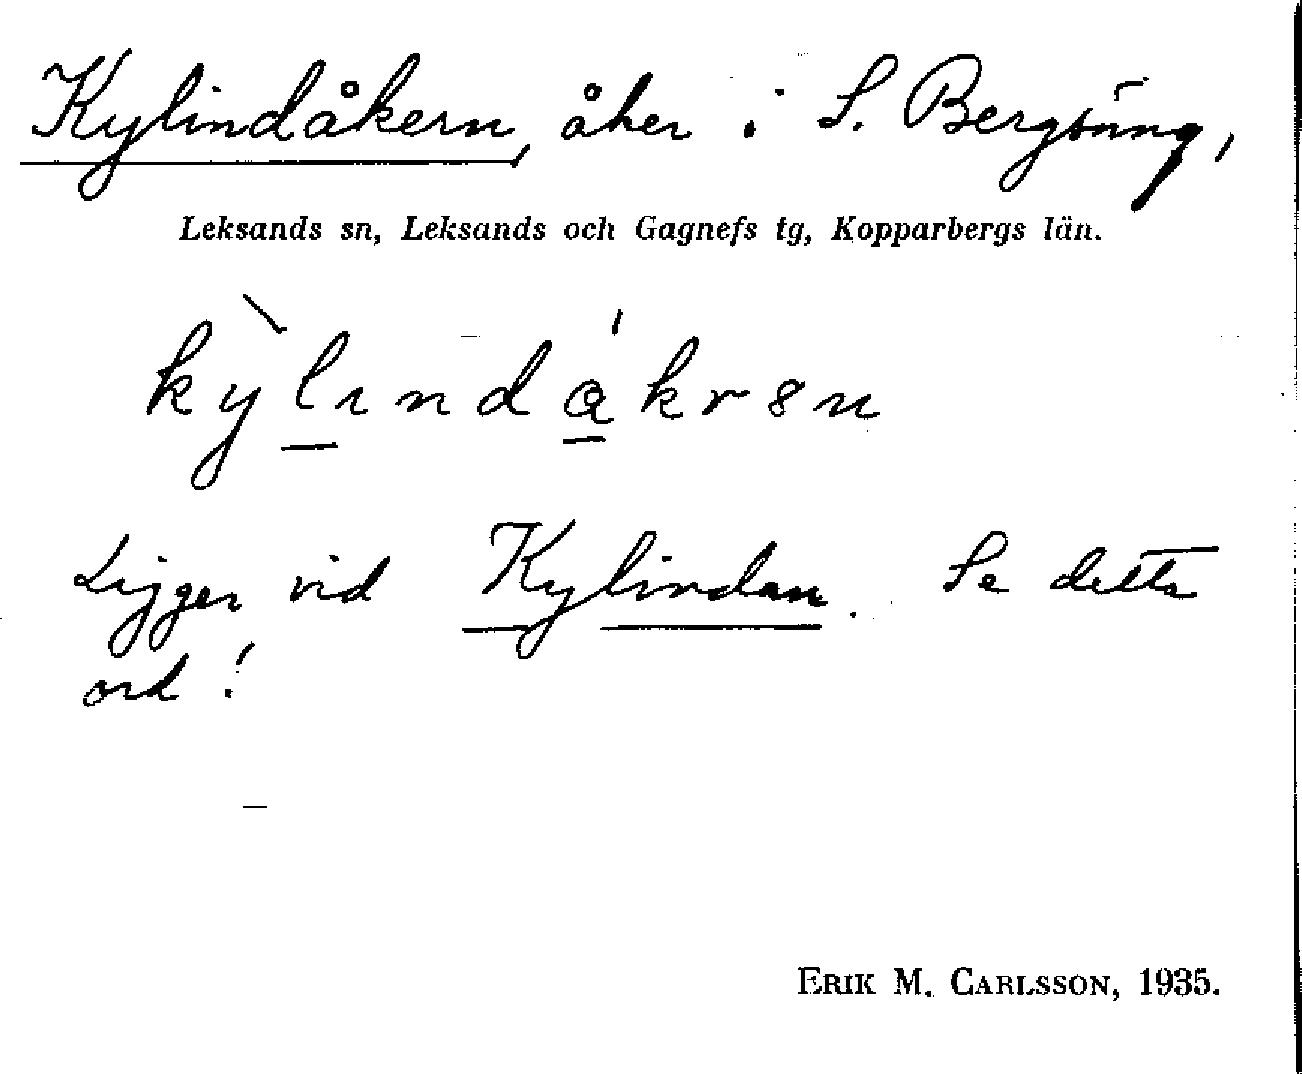 Kylindåkern, åker i S. Bergsäng,
Leksands sn, Leksands och Gagnefs tg, Kopparbergs län.
Ligger vid Kylindan. Se detta
ord!
ERIK M. CARLSSON, 1935.